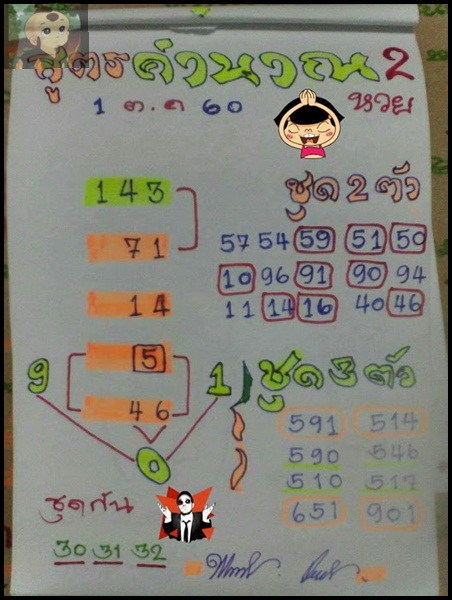 สูตรคำนวณ 2
1 ต.ค 60
หวย
143
71
14
5
46
9 1
0
ชุด 2 ตัว
57 54 59 51 50
10 96 91 90 94
11 14 16 40 46
ชุด 3 ตัว
591 514
590 546
510 517
651 901
ชุดกัน
30 31 32